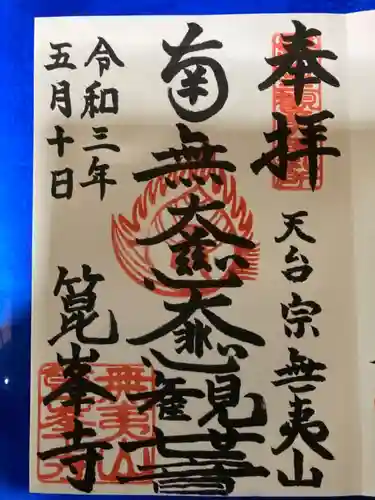 奉拝
天台宗 無夷山
南無大慈大悲観世音
箆峯寺
令和三年
五月十日
無夷山